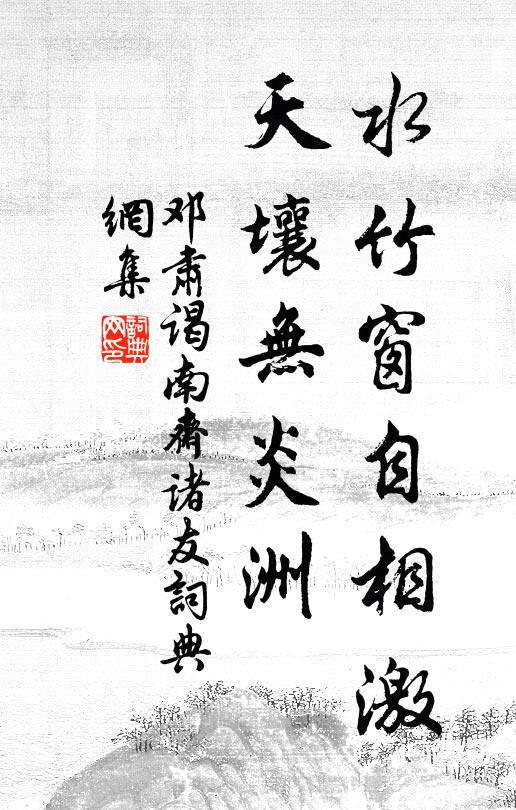 水竹窗自相激
天壤無炎洲
邓肅谒南齋诸友詞典
網集
詞典
网印